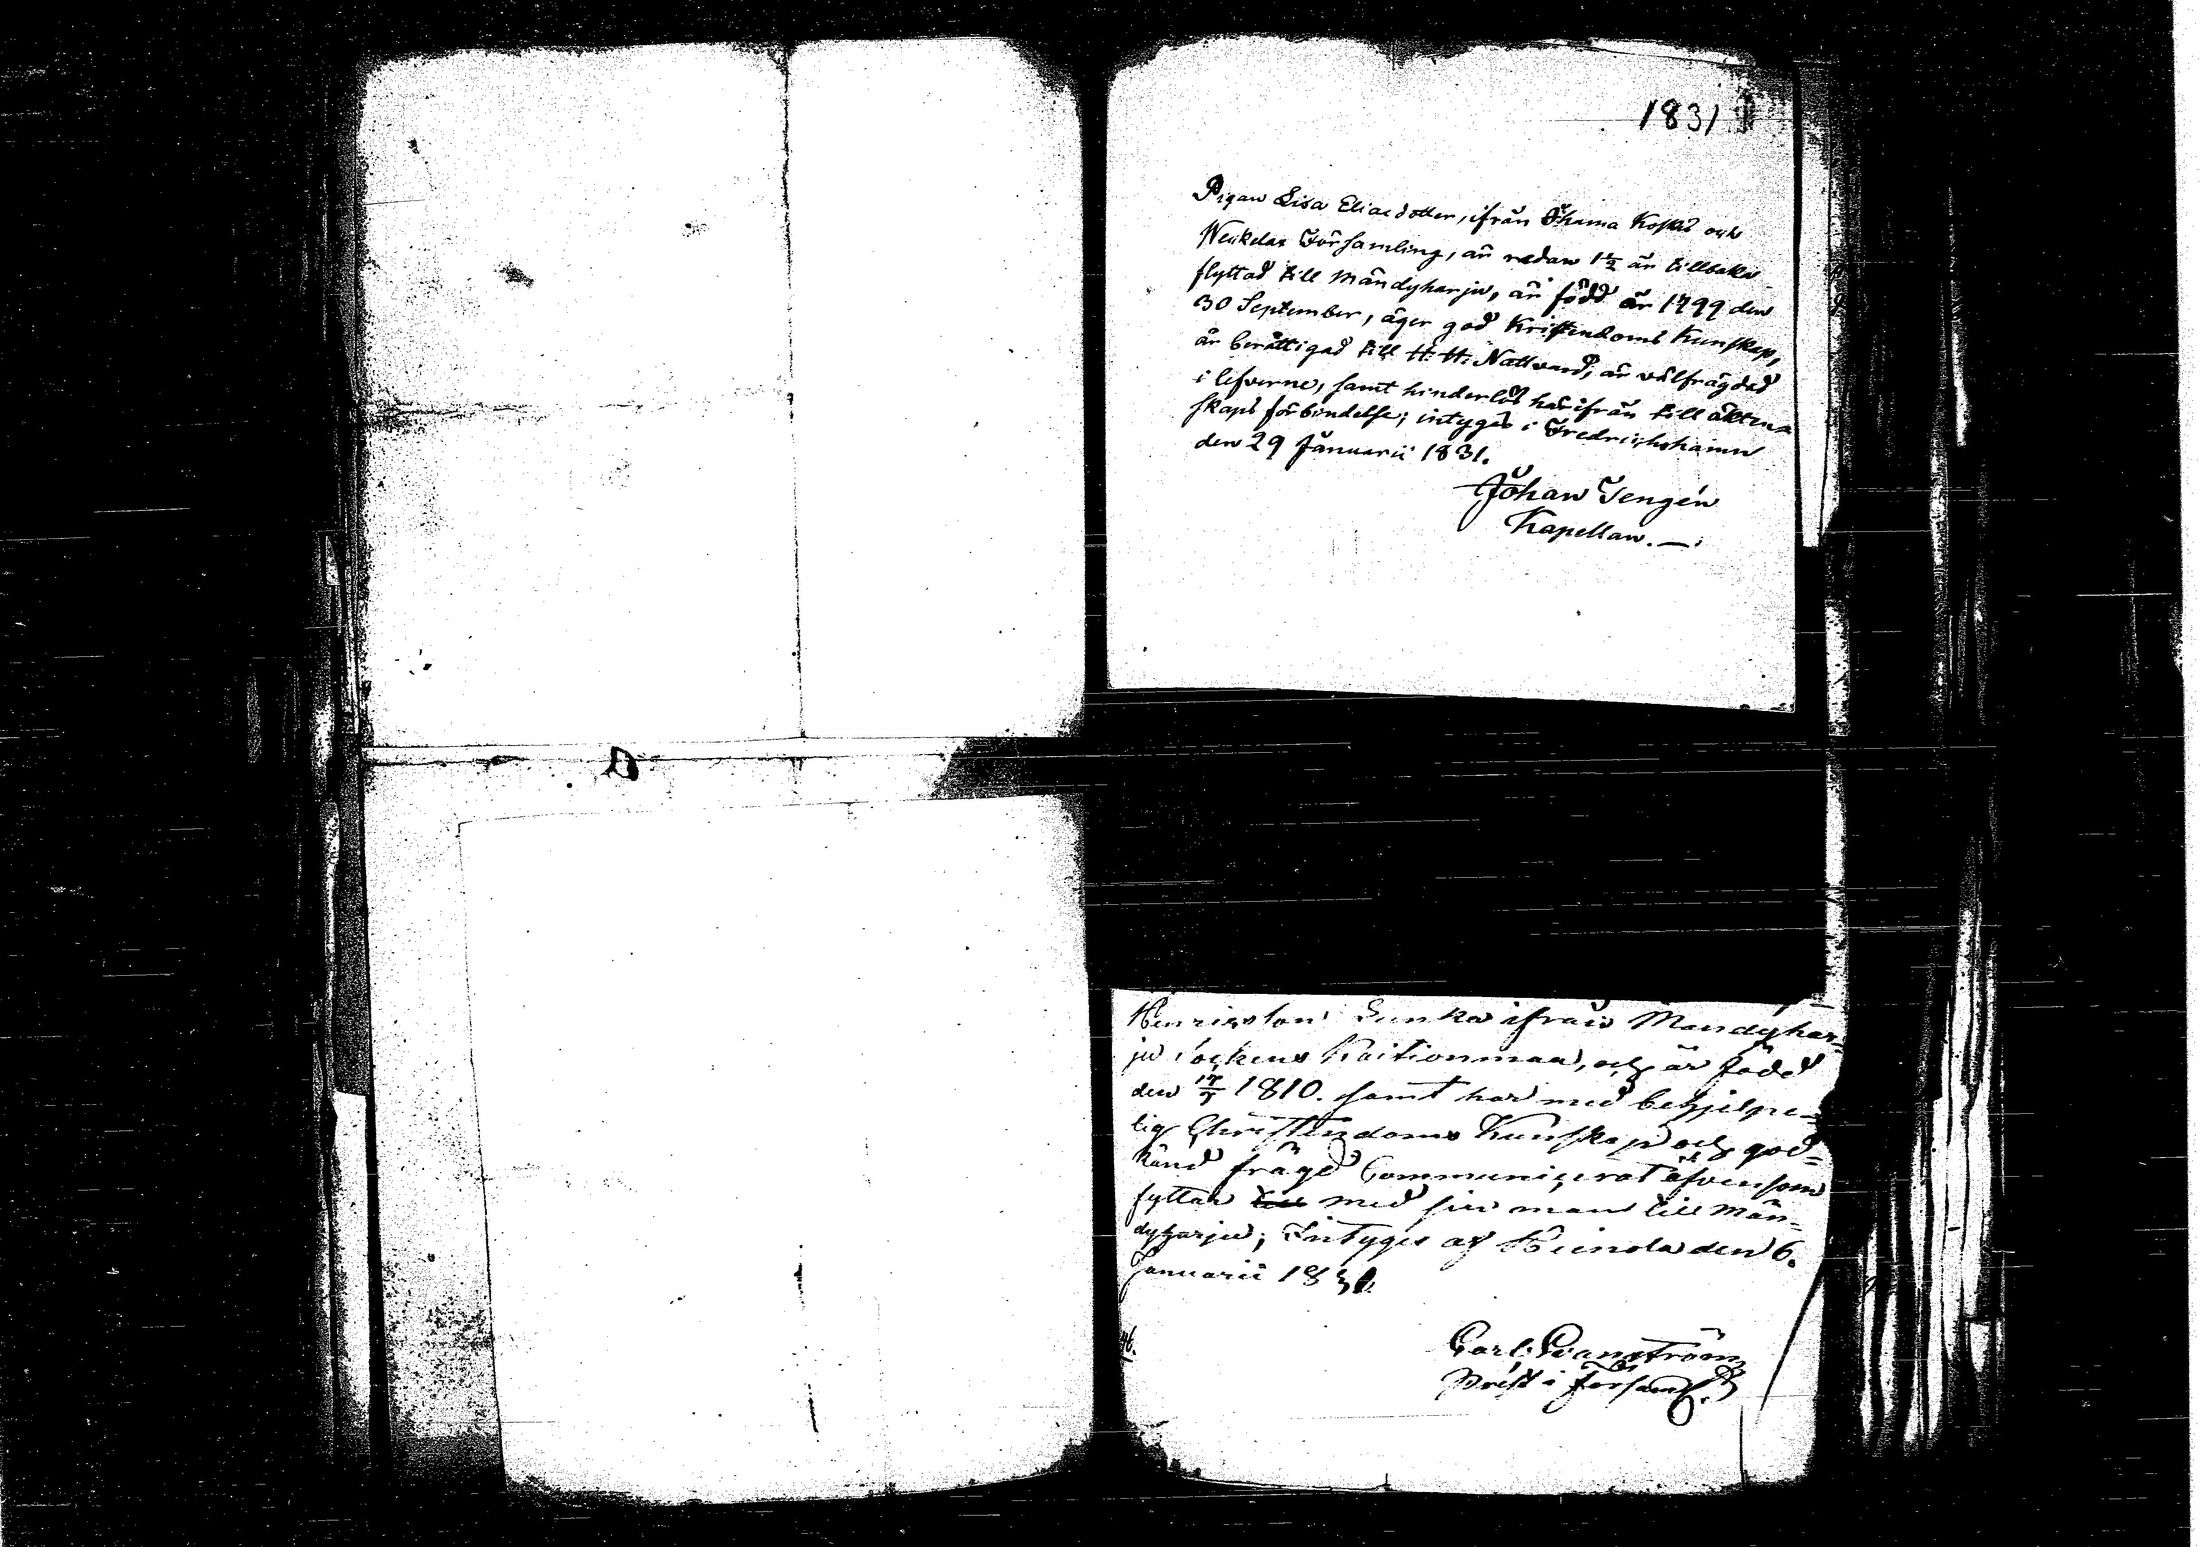 1831
Pigan Lisa Eliaedotter, ifrån Öhama Koski och
Weckelax Församling, är redan 1½ år tillbaka
flyttad till Mändyharju, är född år 1799 den
30 September, äger god Kristendoms Kunskap,
är berättigad till H. H. Nattvard, är välfrägdad
i lefverne, samt hinderlös härifrån till äkten=
skaps förbindelse; intygas i Fredrichshamn
den 29 Januarii 1831.
Johan Tengén
Kapellan.
Henricsson ifrån Mandyhar=
ju Sockens och är född
den 1810. samt har med behjelpe=
lig Christendoms Kunskap och god=
känd frägd Communicerat äfvensom
fyttar med sin man till Män=
dyharju; Intygas af Heinola den 6.
Januarii 1831.
Carl Granström
Prest i Församl.